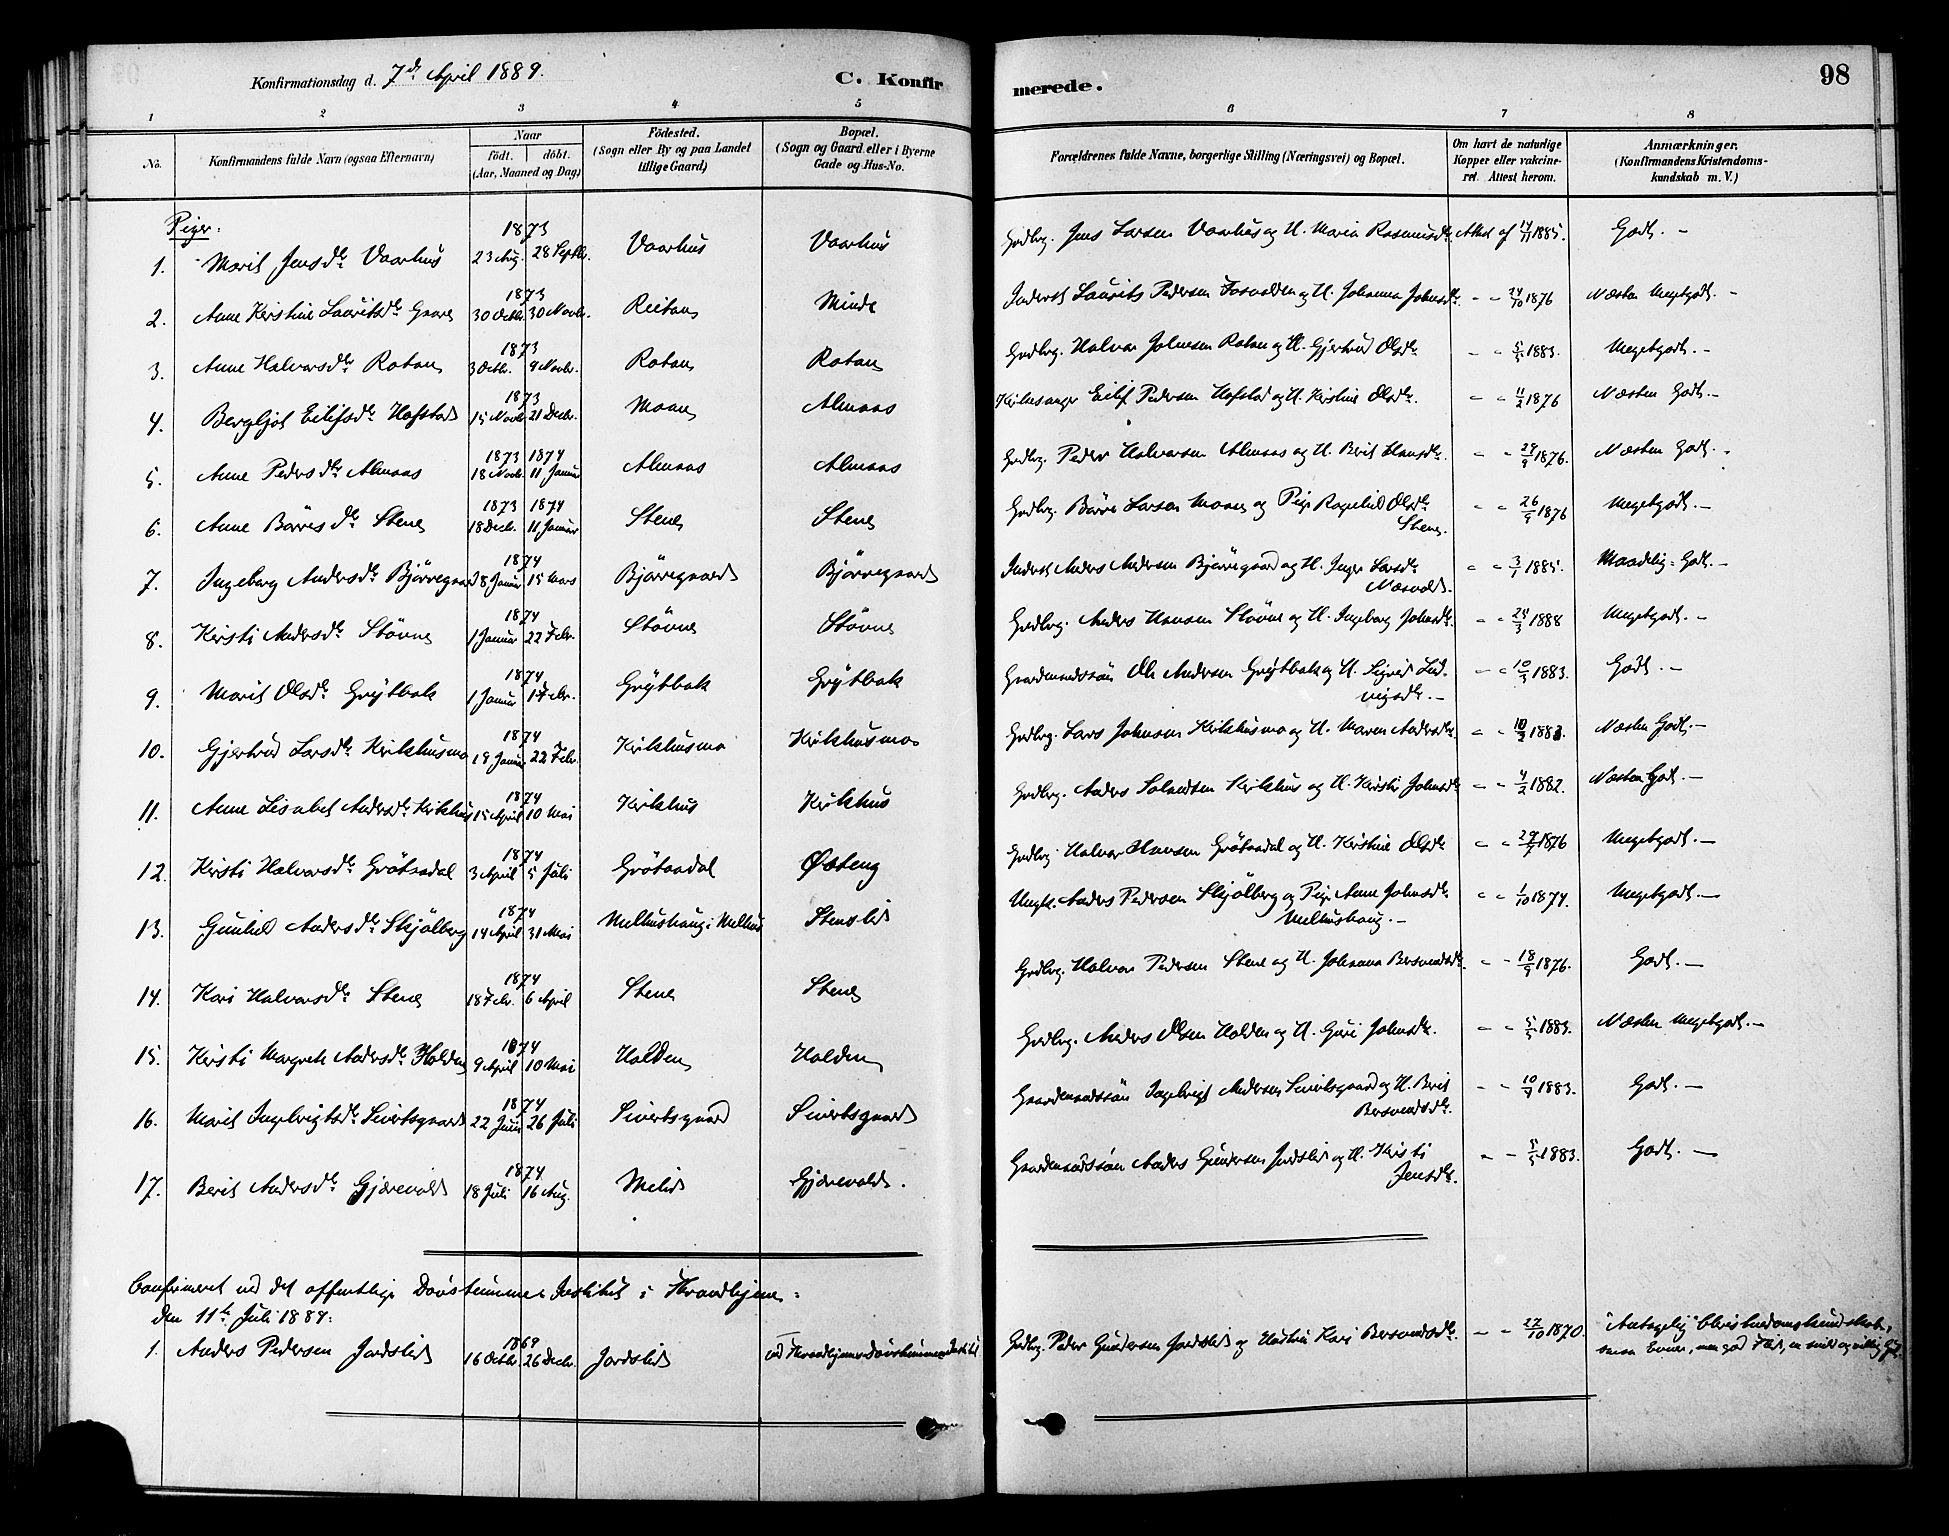 Konfirmationsdag d. 7de April 1889.
C. Konfirmerede.
98
1 2 3 4 5 6 7 8
No.
Konfirmandens fulde Navn (ogsaa Efternavn)
Naar
födt. döbt.
(Aar, Maaned og Dag)
Födested.
(Sogn eller By og paa Landet
tillige Gaard)
Bopæl.
(Sogn og Gaard eller i Byerne
Gade og Hus-No.
Forældrenes fulde Navne, borgerlige Stilling (Næringsvei) og Bopæl.
Om havt de naturlige
Kopper eller vakcine-
ret. Attest herom.
Anmærkninger.
(Konfirmandens Kristendoms-
kundskab m. V.)
Piger:
1873
1. Marit Jensdr Vaarhus 23 Aug. 28 Septbr. Vaarhus Vaarhus Grdbrg. Jens Larsen Vaarhus og H. Maria Rasmusdr. Attest af 1885. Godt. -
1873
2. Anne Kirstine Lauritsdr 30 Octbr. 30 Novbr. Reitan Minde Inderst Laurits Pedersen og H. Johanna Johnsdr. - - 24/10 1876 Næsten Megetgodt. -
1873
3. Anne Halvorsdr Rotan 3 Octbr. 9 Novbr. Rotan Rotan Grdbrg. Halvor Johnsen Rotan og H. Gjertrud Olsdr. - - 5/5 1883. Megetgodt. -
1873
4. Bergljot Eilifsdr Hofstad 15 Novbr. 21 Decbr. Moan Almaas Kirkesanger Eilif Pedersen Hofstad og H. Kirstine Olsdr. - - 11/2 1876 Næsten Godt. -
1873 1874
5. Anne Pedersdr Almaas 18 Novbr. 11 Januar Almaas Almaas Grdbrg. Peder Halvorsen Almaas og H. Berit Hansdr. - - 1876. Næsten Godt. -
1873 1874
6. Anne Börresdr Stene 18 Decbr. 11 Januar Stene Stene Grdbrg. Börre Larsen Moan og Pige Ragnhild Olsdr. - - 26/9 1876 Megetgodt. -
Stene.
1874
7. Ingeborg Andersdr Bjørregaard 28 Januar 15 Mars Bjørregaard Bjørregaard Inderst Anders Andersen Bjørregaard og H. Inger Larsdr - - 3/1 1885. Maadelig-Godt. -
Næsvold.
1874
8. Kirsti Andersdr Støvne 1 Januar 22 Febr. Støvne Støvne Grdbrg. Anders Hansen Støvne og H. Ingeborg Johnsdr. - - 24/3 1888 Megetgodt. -
1874
9. Marit Olsdr Grytbak 1 Januar 1 Febr. Grytbak Grytbak Gaardmandssön Ole Andersen Grytbak og H. Sigrid Lud- - - 10/5 1883. Godt. -
vigsdr. -
1874
10. Gjertrud Larsdr Kirkhusmo 18 Januar 22 Febr. Kirkhusmo Kirkhusmo Grdbrg. Lars Johnsen Kirkhusmo og H. Maren Andersdr - - 10/2 1883. Næsten Godt. -
1874
11. Anne Lisabet Andersdr Kirkhus 15 April 10 Mai Kirkhus Kirkhus Grdbrg. Anders Kirkhus og H. Kirsti Johnsdr - - 4/2 1882. Næsten Godt. -
1874
12. Kirsti Halvorsdr Grötaadal 3 April 5 Juli Grötaadal Østeng Grdbrg. Halvor Hansen Grötaadal og H. Kirstine Olsdr - - 1876 Megetgodt. -
1874
13. Gunhild Andersdr Skjølberg 14 April 31 Mai Melhushaug i Melhus Stenslid Ungk. Anders Pedersen Skjølberg og Pige Anne Johnsdr. - - 1/10 1874. Megetgodt. -
Melhushaug. -
1874
14. Kari Halvorsdr Stene 18 Febr. 6 April Stene Stene Grdbrg. Halvor Pedersen Stene og H. Johanna Bersvendsdr. - - 18/9 1876. Godt. -
1874
15. Kirsti Margrete Andersdr Holden 9 April 10 Mai Holden Holden Grdbrg. Anders Olsen Holden og H. Guri Johnsdr. - - 5/5 1883. Næsten Megetgodt. -
1874
16. Marit Ingebrigtsdr Sivertsgaard 22 Juni 26 Juli Sivertsgaard Sivertsgaard Gaardmandssön Ingebrigt Andersen Sivertsgaard og H. Berit - - 10/9 1883. Godt. -
Bersvendsdr.
1874
17. Berit Andersdr Gjærevold 18 Juli 16 Aug. Melid Gjærevold. Gaardmandssön Anders Gundersen Jordslid og H. Kirsti - - 5/5 1883. Godt. -
Jensdr.
Confirmeret ved det offentlige Døvstumme-Institut i Throndhjem:
den 11te Juli 1889:
1869
1. Anders Pedersen Jordslid 16 Octbr. 26 Decbr. Jordslid ved Throndhjems Døvstumme-Institut Grdbg. Peder Gundersen Jordslid og Hustru Kari Bersvendsdr. - - 27/10 1870. "Antagelig" Christendomskundskab,
smaa Evner, men god Flid,